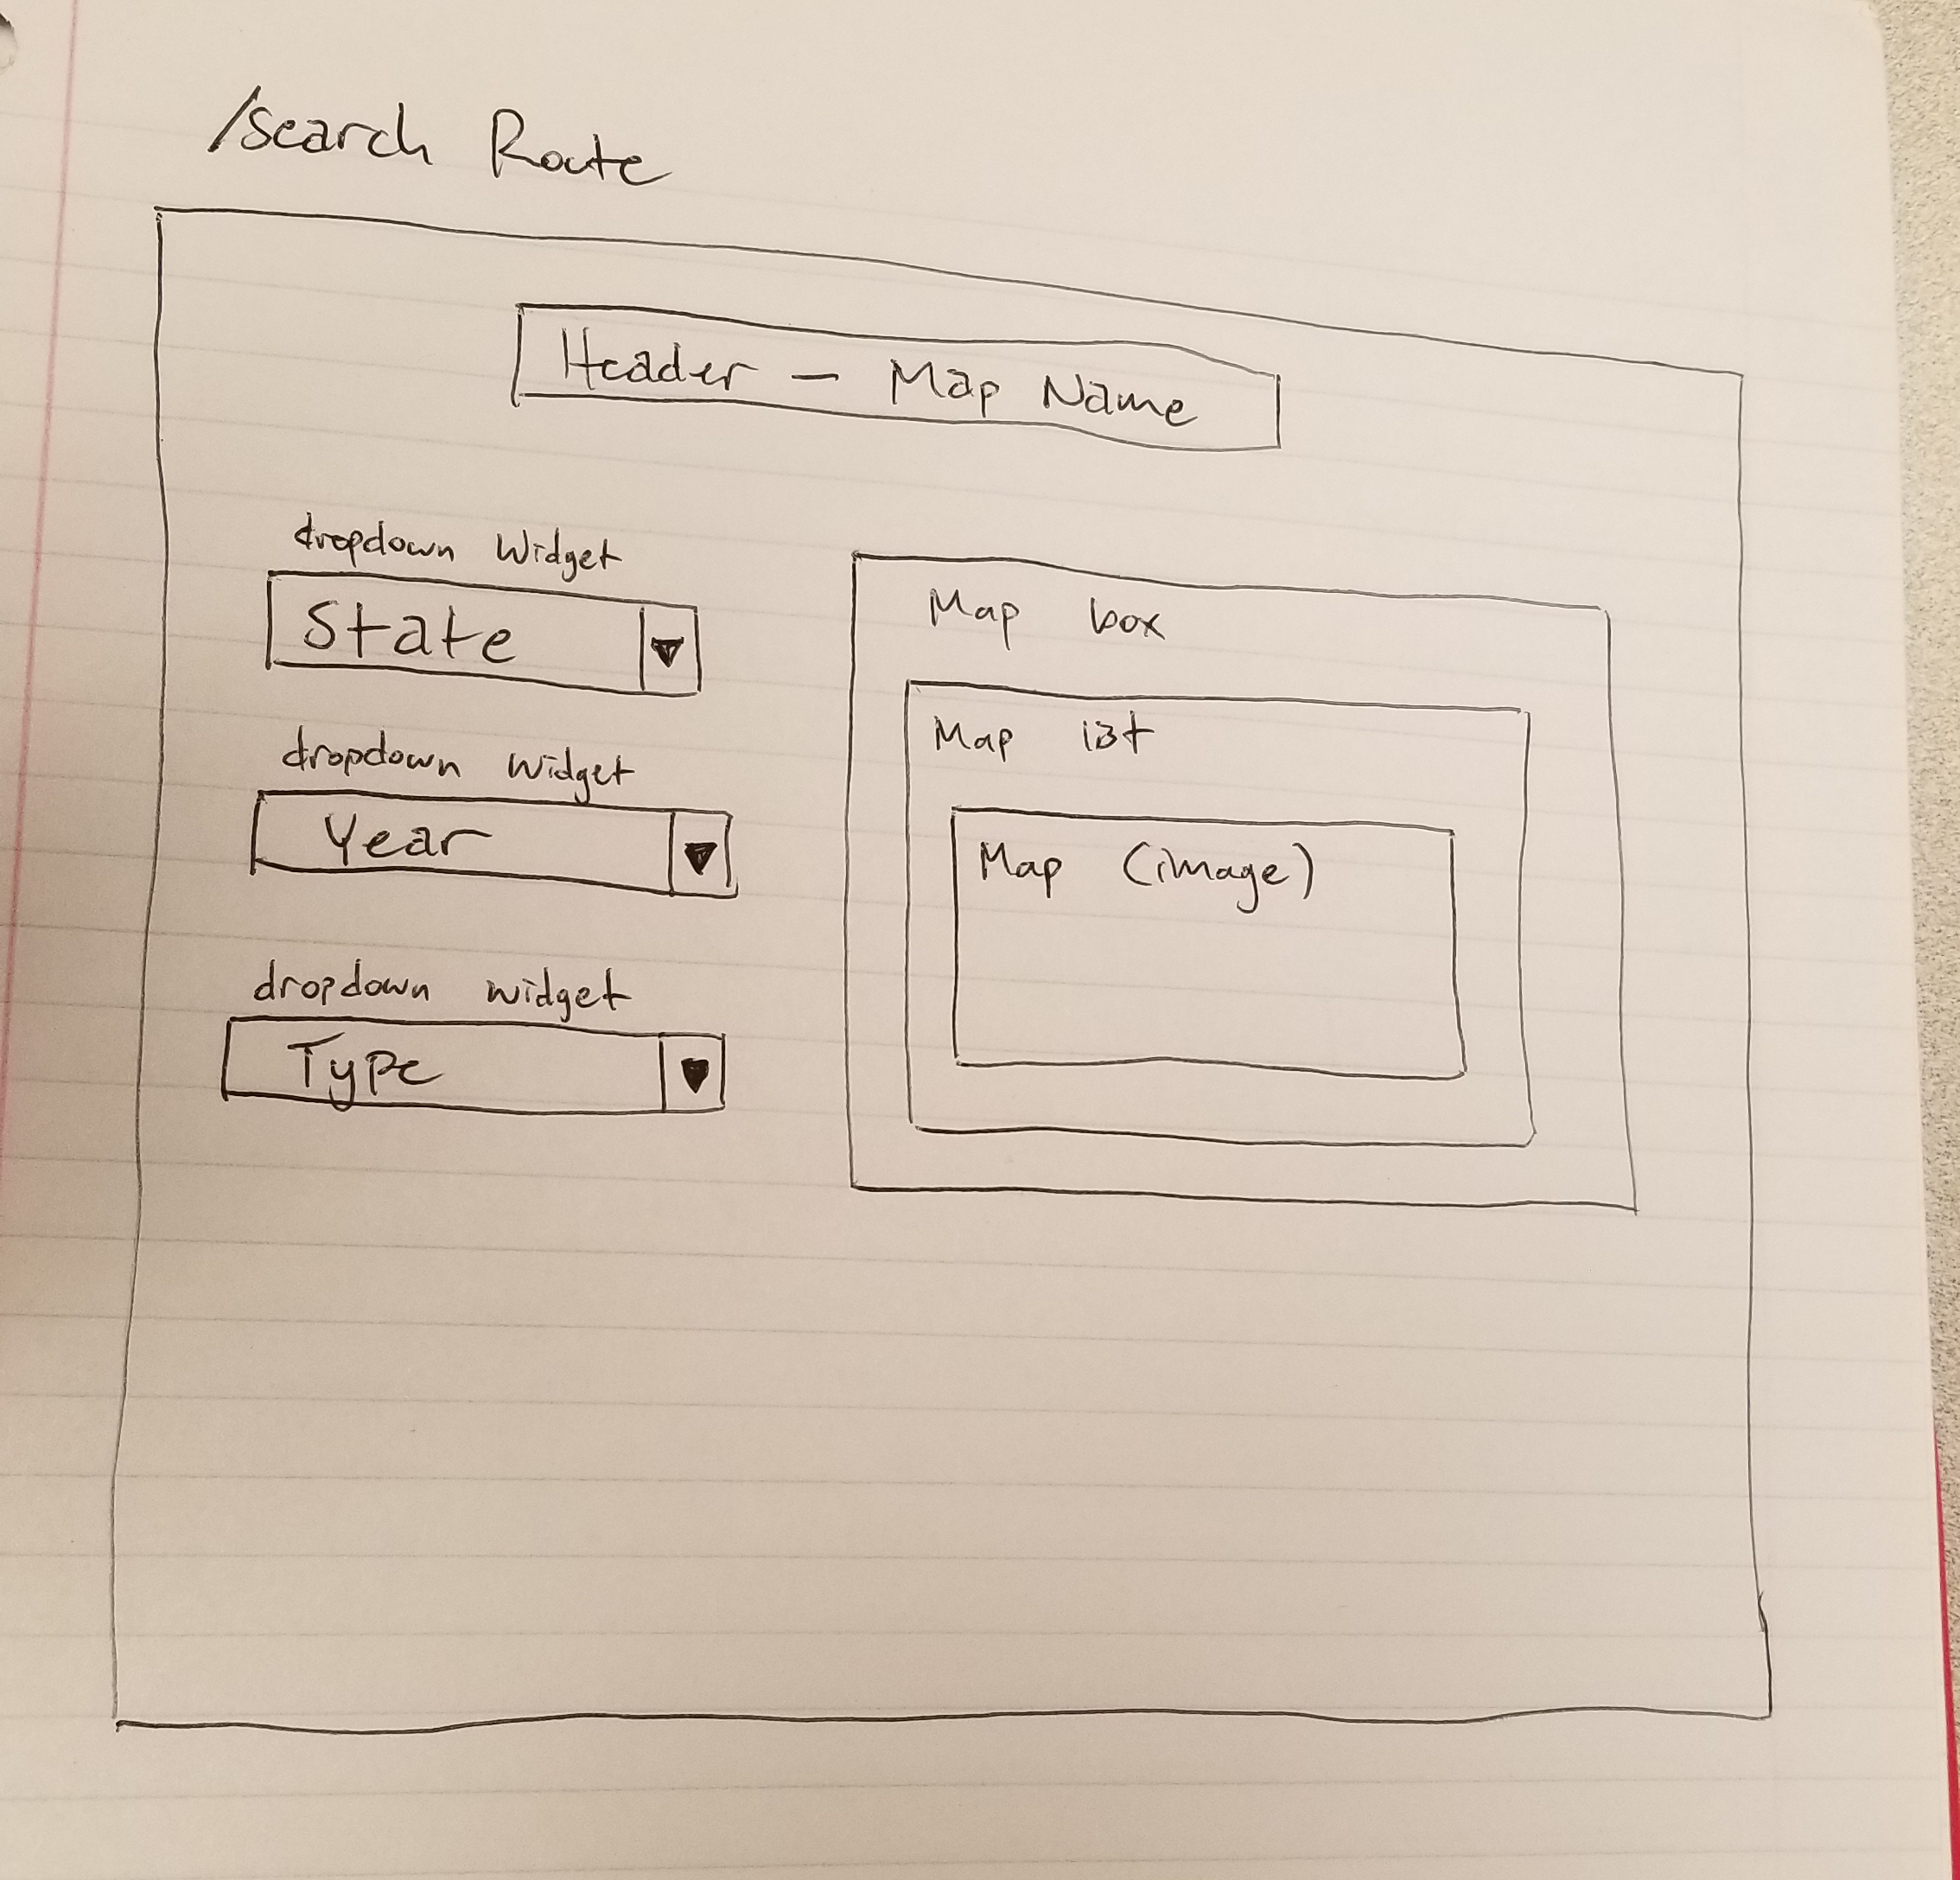 /search Route
Header - Map Name
dropdown Widget
State
dropdown Widget
Year
dropdown widget
Type
Map box
Map list
Map (image)